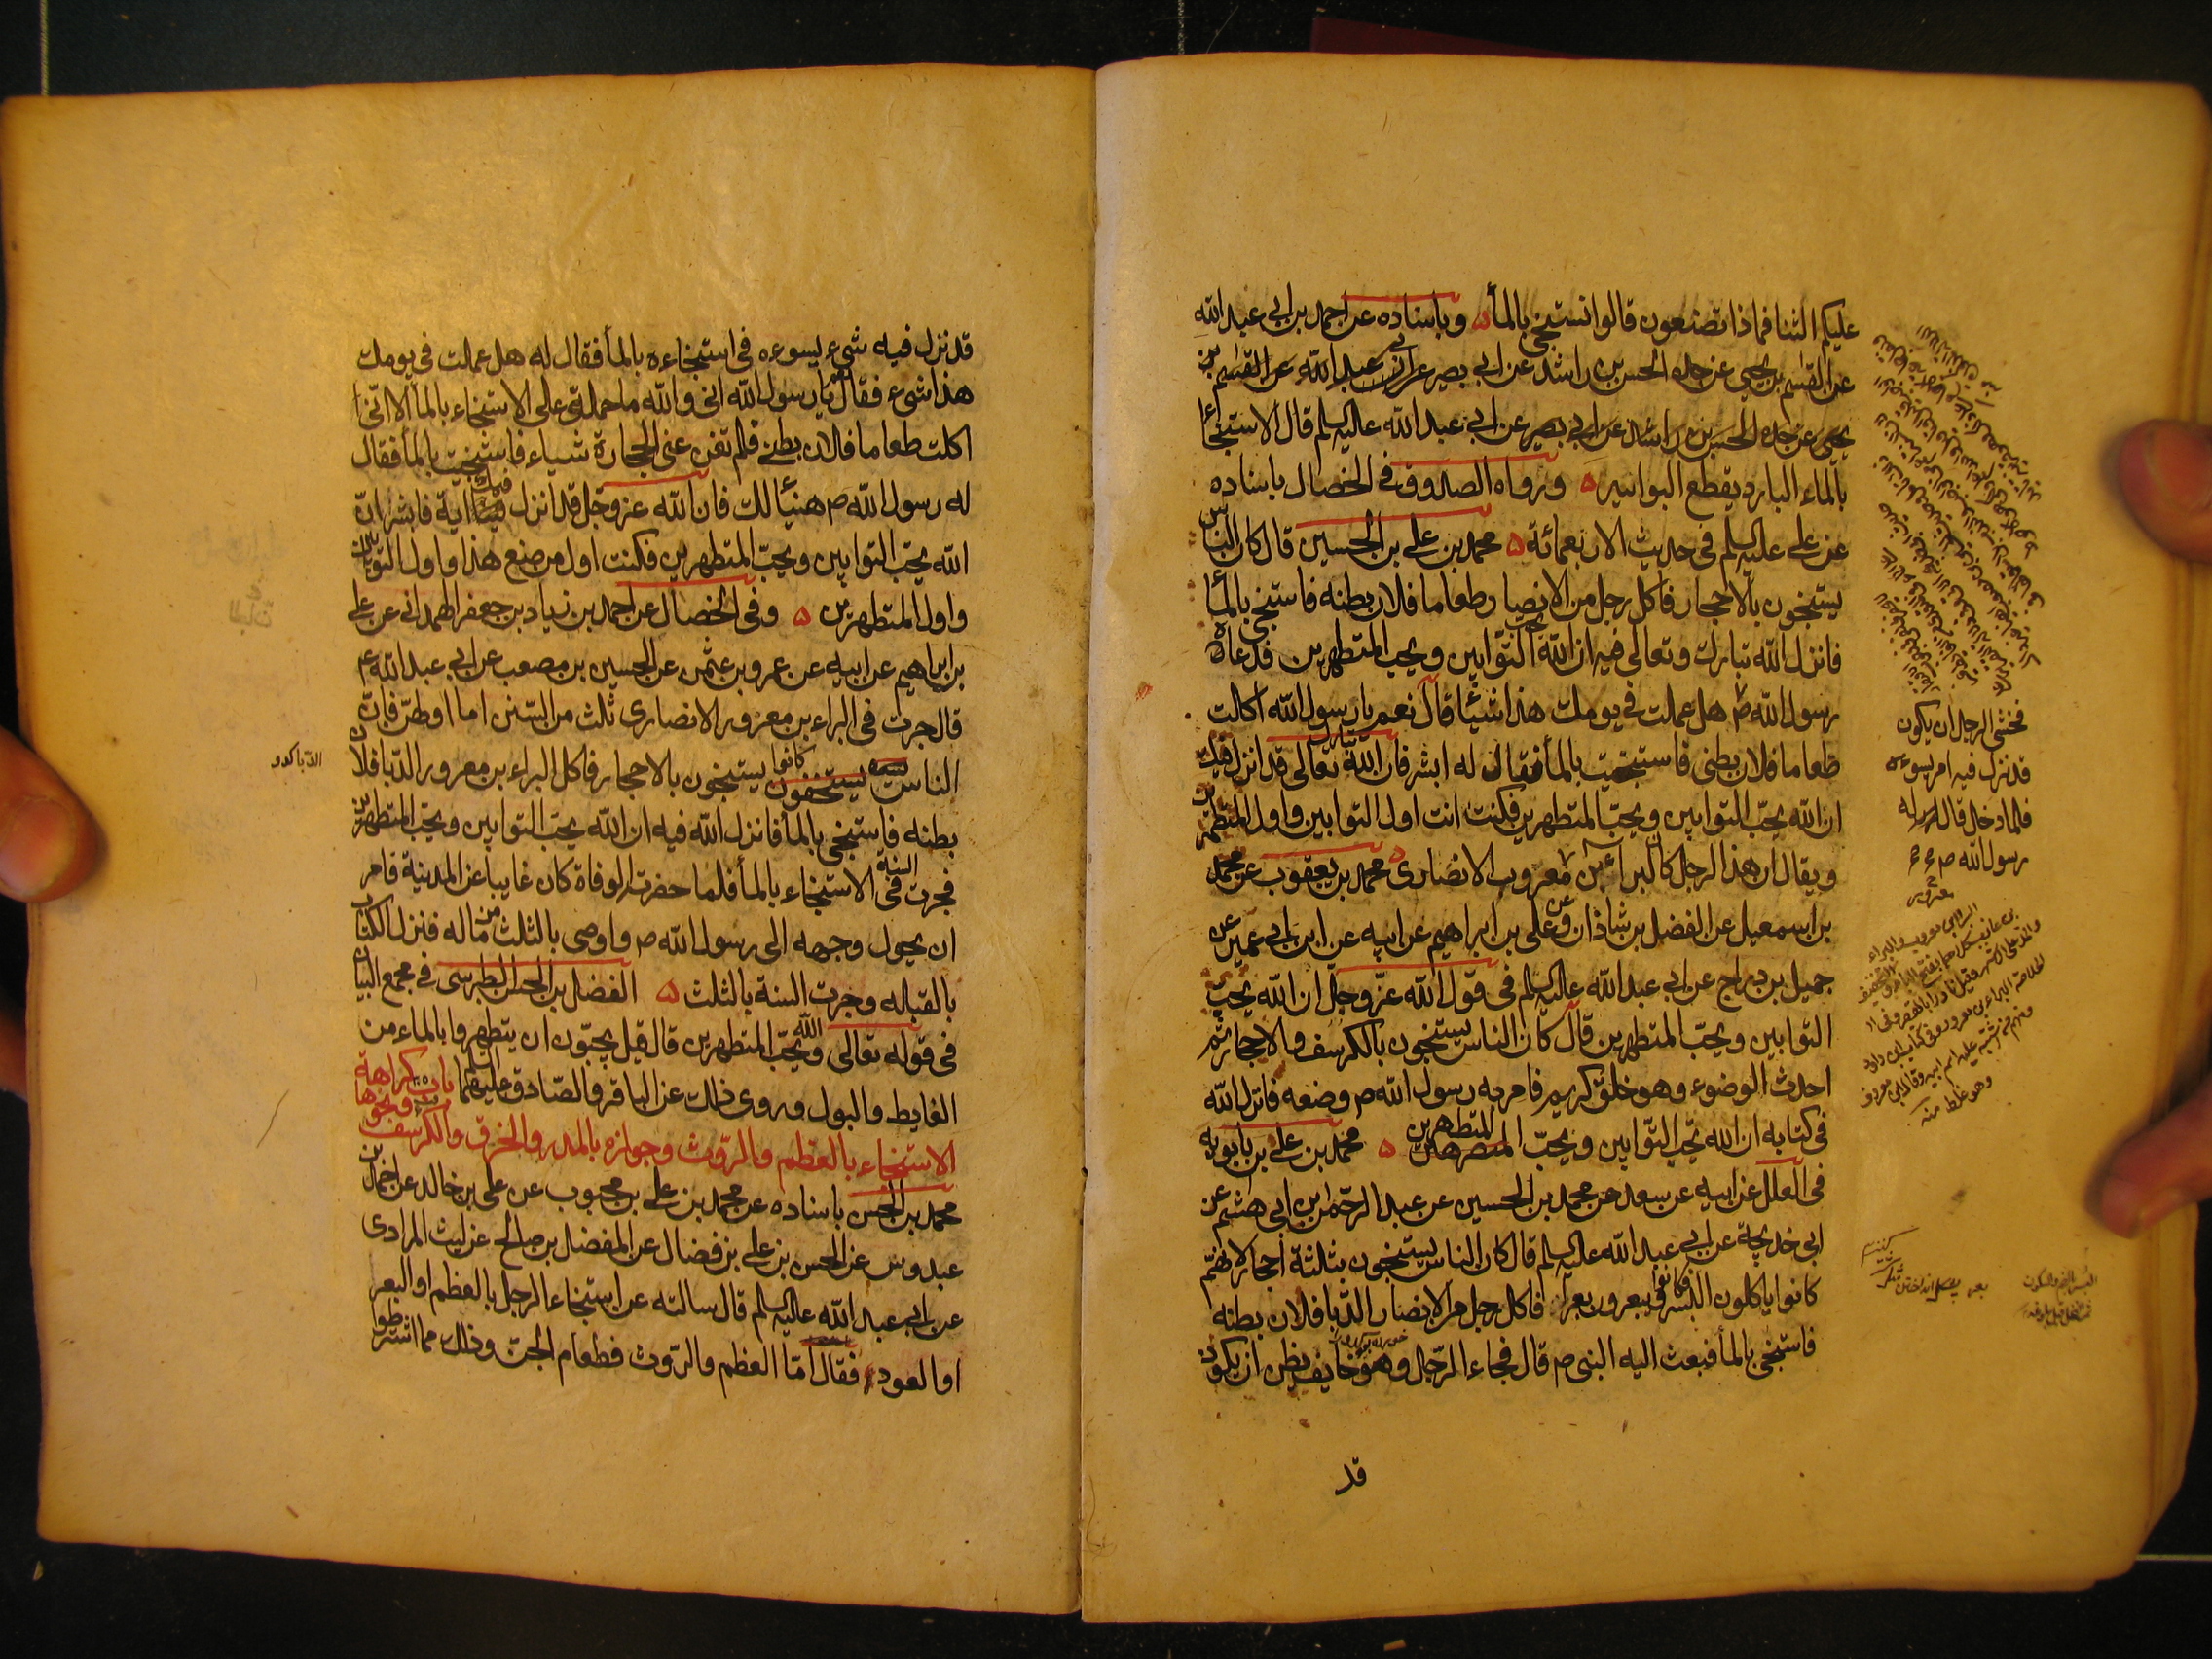 عليكم الثنا فماذا تصنعون قالوا نستنجى بالمأ ۵ وباسناده عن احمد بن ابى عبد الله
عن القسم بن يحيى عن جده الحسن بن راشد عن ابى بصير عن ابى عبد الله عن القسم بن
يحيى عن جده الحسن بن راشد عن ابى بصير عن ابى عبد الله عليه السلم قال الاستنجا
بالماء البارد يقطع البواسير ۵ ورواه الصدوق فى الخصال باسناده
عن على عليه السلم فى حديث الاربعمائة ۵ محمد بن على بن الحسين قال كان الناس
يستنجون بالاحجار فاكل رجل من الانصار طعاما فلان بطنه فاستنجى بالمأ
فانزل الله تبارك وتعالى فيه ان الله يحب التوابين ويحب المتطهرين فدعاه
رسول الله ص هل عملت فى يومك هذا شيئا قال نعم يا رسول الله اكلت
طعاما فلان بطنى فاستنجيت بالمأ فقال له ابشر فان الله تبارك تعالى قد انزل فيك
ان الله يحب التوابين ويحب المتطهرين فكنت انت اول التوابين واول المتطهرين
ويقال ان هذا الرجل كان البراء بن معرور الانصارى ۵ محمد بن يعقوب عن محمد
بن اسمعيل عن الفضل بن شاذان وعن على بن ابراهيم عن ابيه عن ابن ابى عمير عن
جميل بن دراج عن ابى عبد الله عليه السلم فى قول الله عز وجل ان الله يحب
التوابين ويحب المتطهرين قال كان الناس يستنجون بالكرسف والاحجار ثم
احدث الوضوء وهو خلق كريم فامر به رسول الله ص وضعه فانزل الله
فى كتابه ان الله يحب التوابين ويحب المتطهرين ۵ محمد بن على بن بابويه
فى العلل عن ابيه عن سعد عن محمد بن الحسين عن عبد الرحمن بن ابى هشم عن
ابى خديجة عن ابى عبد الله عليه السلم قال كان الناس يستنجون بثلثة احجار لانهم
كانوا ياكلون البسر فكانوا يبعرون بعرا فاكل رجل من الانصار الدبا فلان بطنه
فاستنجى بالمأ فبعث اليه النبى ص قال فجاء الرجل وهو خايف يظن ان يكون
قد
فخشى الرجل ان يكون
قد نزل فيه امر يسوءه
فلما دخل قال له
رسول الله ص
قد نزل فيه شىء يسوءه فى استنجاءه بالمأ فقال له هل عملت فى يومك
هذا شىء فقال نعم يا رسول الله انى والله ما حملنى على الاستنجاء بالمأ الا انى
اكلت طعاما فلان بطنى فلم تغن عنى الحجارة شيئاء فاستنجيت بالمأ فقال
له رسول الله ص هنيئا لك فان الله عز وجل قد انزل فيك اية فابشر ان
الله يحب التوابين ويحب المتطهرين فكنت اول من صنع هذا واول التوابين
واول المتطهرين ۵ وفى الخصال عن احمد بن زياد بن جعفر الهمدانى عن على
بن ابراهيم عن ابيه عن عمرو بن عثمن عن الحسين بن مصعب عن ابى عبد الله ع
قال جرت فى البراء بن معرور الانصارى ثلث من السنن اما اوليهن فان
الناس كانوا يستنجون بالاحجار فاكل البراء بن معرور الدبا فلان
بطنه فاستنجى بالمأ فانزل الله فيه ان الله يحب التوابين ويحب المتطهرين
فجرت السنة فى الاستنجاء بالمأ فلما حضرته الوفاة كان غايبا عن المدينة فامر
ان يحول وجهه الى رسول الله ص واوصى بالثلث من ماله فنزل الكتاب
بالقبله وجرت السنة بالثلث ۵ الفضل بن الحسن الطبرسى فى مجمع البيان
فى قوله تعالى والله يحب المتطهرين قال قيل يحبون ان يتطهروا بالماء من
الغايط والبول وروى ذلك عن الباقر والصادق عليهما السلم باب كراهة
الاستنجاء بالعظم والروث وجوازه بالمدر والخزف والكرسف ونحوها
محمد بن الحسن باسناده عن محمد بن على بن محبوب عن على بن خالد عن احمد بن
عبدوس عن الحسن بن على بن فضال عن المفضل بن صالح عن ليث المرادى
عن ابى عبد الله عليه السلم قال سالته عن استنجاء الرجل بالعظم او البعر
او العود فقال اما العظم والروث فطعام الجن وذلك مما اشترطوا
الدبا كدو